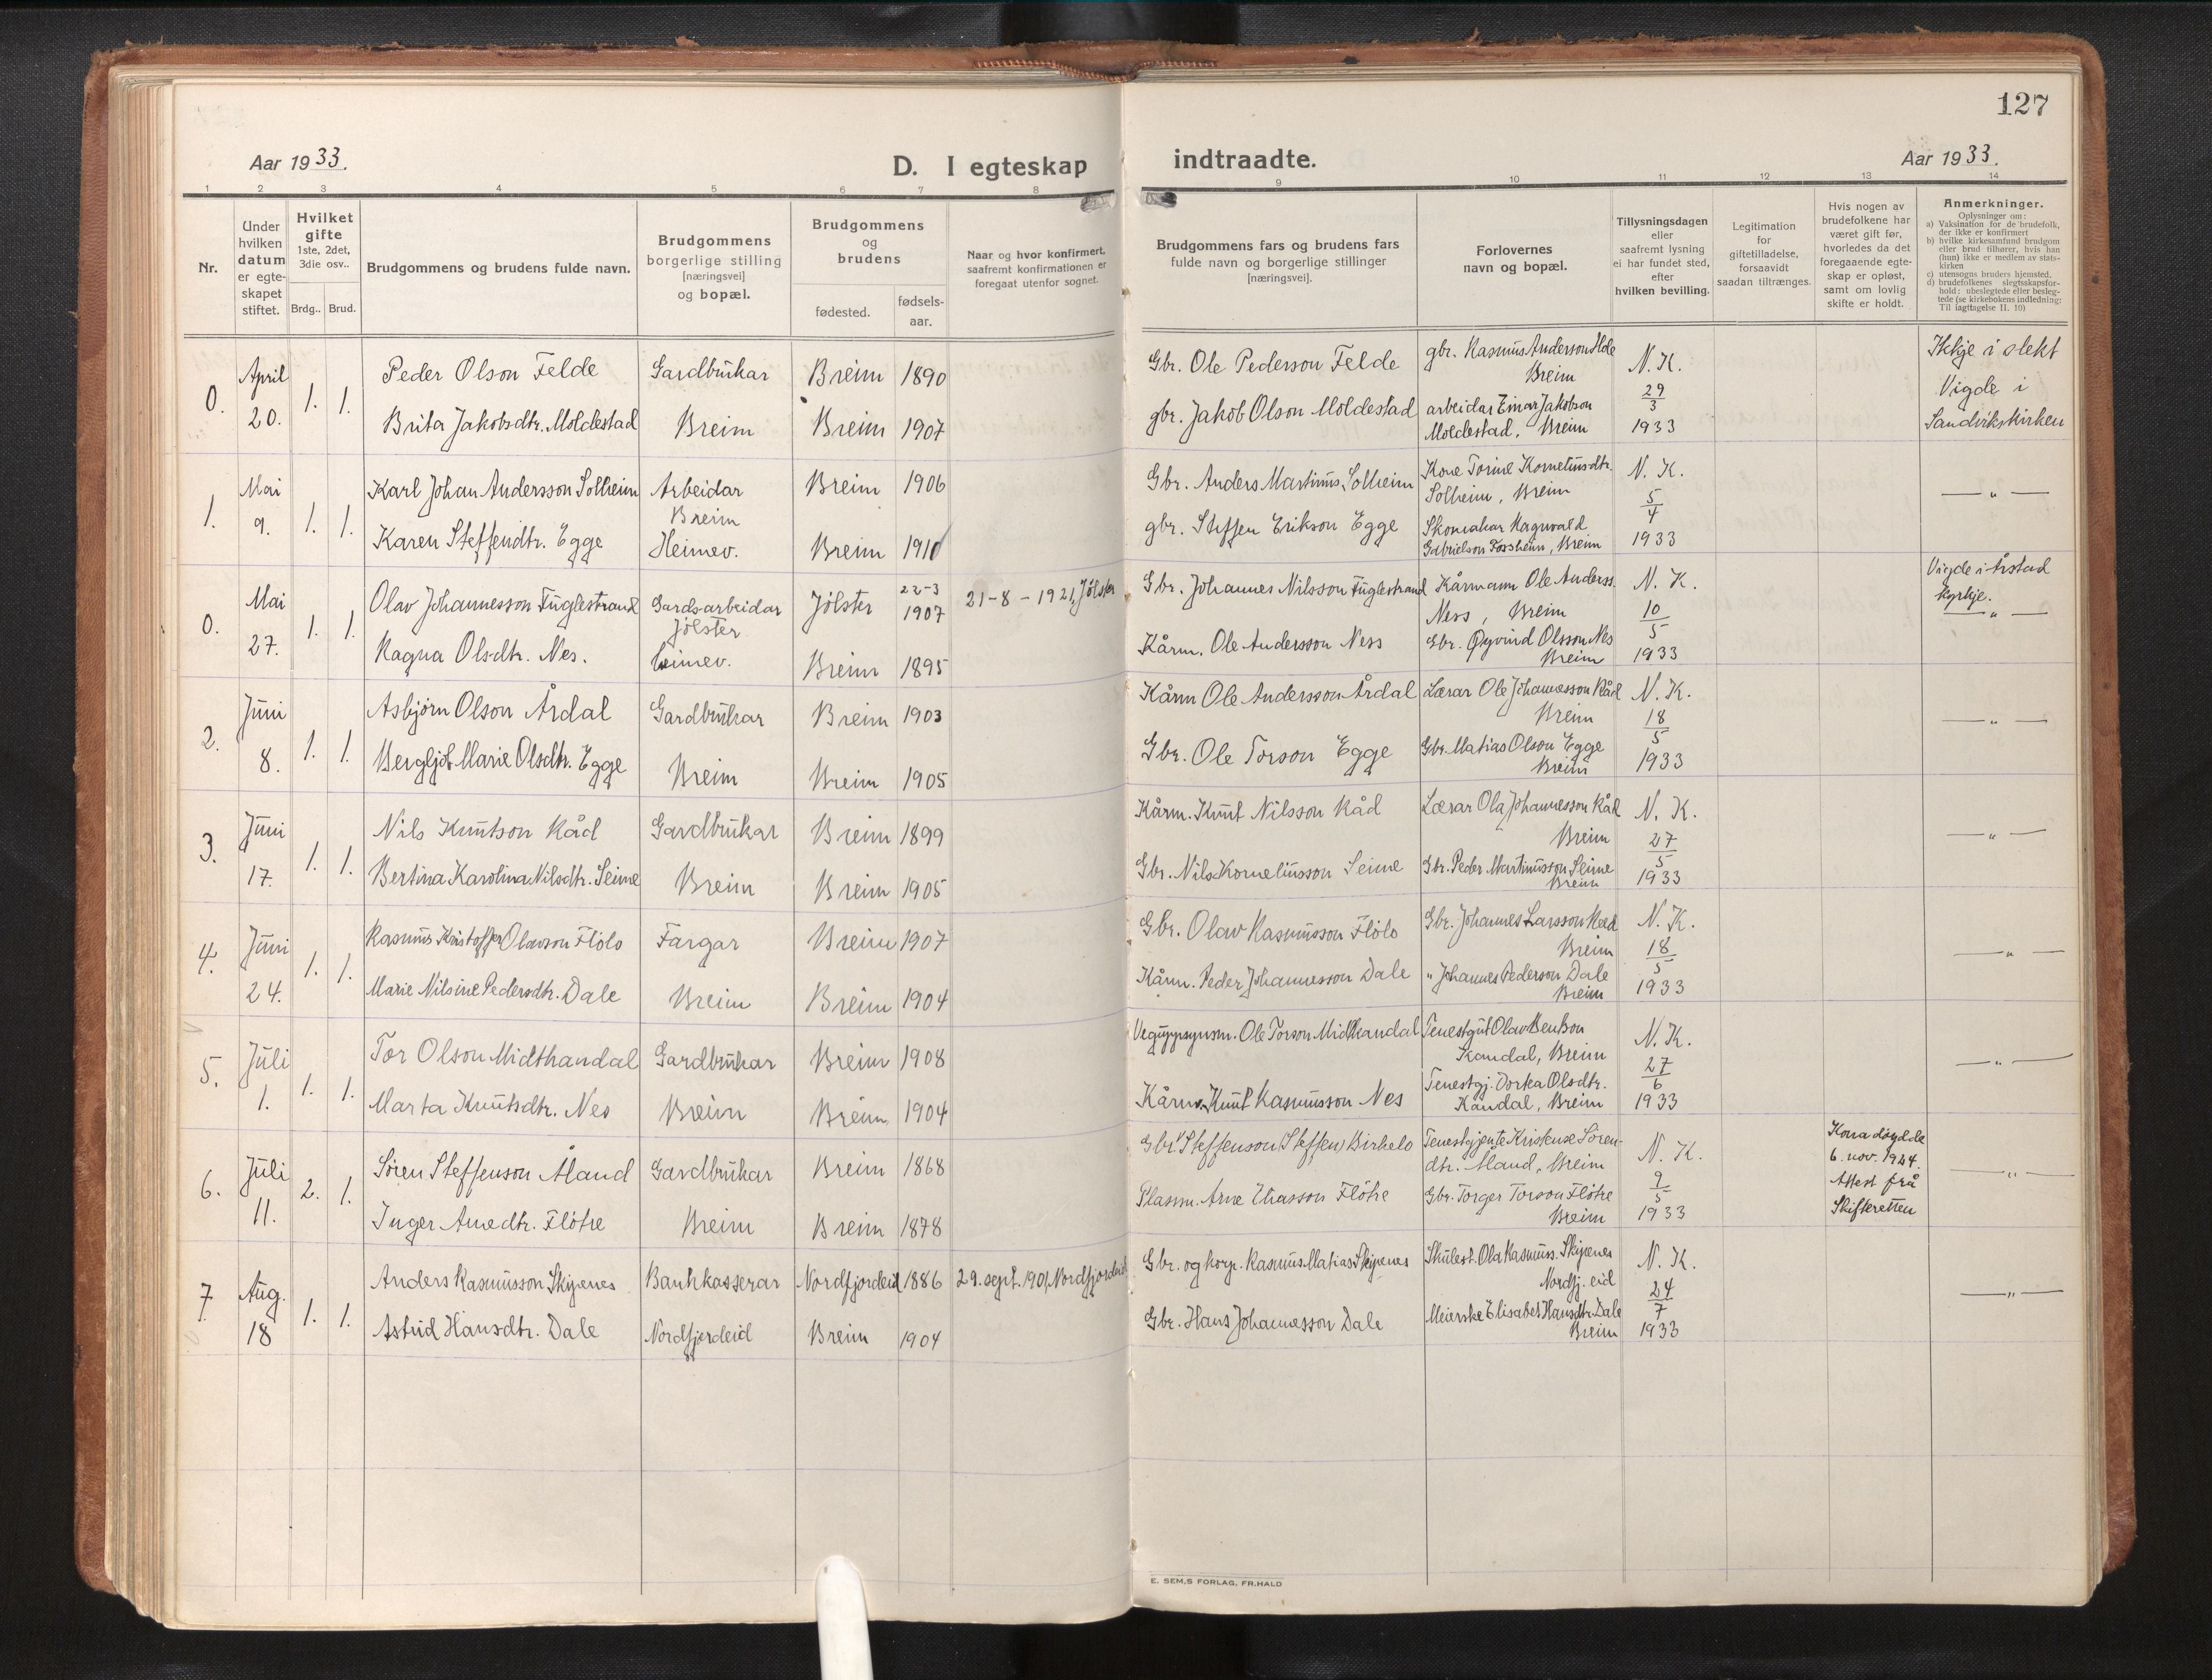 127
Aar 1933.
D. I egteskap indtraadte.
Aar 1933.
1 2 3 4 5 6 7 8 9 10 11 12 13 14
Nr.
Under hvilken datum er egte-skapet stiftet.
Hvilket gifte
1ste, 2det, 3die osv..
Brdg.. Brud.
Brudgommens og brudens fulde navn.
Brudgommens borgerlige stilling [næringsvei] og bopæl.
Brudgommens og brudens
fødested. fødsels-aar.
Naar og hvor konfirmert, saafremt konfirmationen er foregaat utenfor sognet.
Brudgommens fars og brudens fars fulde navn og borgerlige stillinger [næringsvei].
Forlovernes navn og bopæl.
Tillysningsdagen eller saafremt lysning ei har fundet sted, efter hvilken bevilling.
Legitimation for giftetilladelse, forsaavidt saadan tiltrænges.
Hvis nogen av brudefolkene har været gift før, hvorledes da det foregaaende egte-skap er opløst, samt om lovlig skifte er holdt.
Anmerkninger.
Oplysninger om:
a) Vaksination for de brudefolk, der ikke er konfirmert
b) hvilke kirkesamfund brudgom eller brud tilhører, hvis han (hun) ikke er medlem av stats-kirken
c) utensogns bruders hjemsted.
d) brudefolkenes slegtsskapsfor-hold: ubeslegtede eller besleg-tede (se kirkebokens indledning: Til iagttagelse II. 10)
0. April 20. 1. 1.
Peder Olson Felde Gardbrukar Breim 1890
Brita Jakobsdtr. Moldestad Breim Breim 1907
Gbr. Ole Pederson Felde
gbr. Jakob Olson Moldestad
gbr. Rasmus Anderson Ilde
Breim
arbeidar Einar Jakobson
Moldestad, Breim
N. K.
29/3
1933
Ikkje i slekt
Vigde i
Sandvikskirken
1. Mai 9. 1. 1.
Karl Johan Andersson Solheim Arbeidar Breim 1906
Breim
Karen Steffendtr. Egge Heimev. Breim 1910
Gbr. Anders Martinus Solheim
gbr. Steffen Erikson Egge
Kone Torine Korneliusdtr.
Solheim, Breim
Skomakar Ragnvald
Gabrielson Forsheim, Breim
N. K.
5/4
1933
— " —
0. Mai 27. 1. 1.
Olav Johannesson Fuglestrand Gardsarbeidar Jølster 22-3 1907 21-8-1921, Jølster
Jølster
Ragna Olsdtr. Nes. heimev. Breim 1895
Gbr. Johannes Nilsson Fuglestrand
Kårm. Ole Andersson Ness
Kårmann Ole Anderss.
Ness, Breim
Gbr. Øyvind Olsson Nes
Breim
N. K.
10/5
1933
Vigde i Årstad
kyrkje.
— " —
2. Juni 8. 1. 1.
Asbjørn Olson Årdal Gardbrukar Breim 1903
Bergljot Marie Olsdtr. Egge Breim Breim 1905
Kårm Ole Andersson Årdal
Gbr. Ole Torson Egge
Lærar Ole Johannesson Råd
Breim
Gbr. Matias Olson Egge
Breim
N. K.
18/5
1933
— " —
3. Juni 17. 1. 1.
Nils Knutson Råd Gardbrukar Breim 1899
Bertina Karolina Nilsdtr. Seime Breim Breim 1905
Kårm. Knut Nilsson Råd
Gbr. Nils Korneliusson Seime
Lærar Ola Johannesson Råd
Breim
Gbr. Peder Martinusson Seime
Breim
N. K.
27/5
1933
— " —
4. Juni 24. 1. 1.
Rasmus Kristoffer Olavson Flølo Fargar Breim 1907
Marie Nilsine Pedersdtr. Dale Breim Breim 1904
Gbr. Olav Rasmusson Flølo
Kårm. Peder Johannesson Dale
Gbr. Johannes Larsson Råd
Breim
" Johannes Pederson Dale
Breim
N. K.
18/5
1933
— " —
5. Juli 1. 1. 1.
Tor Olson Midtkandal Gardbrukar Breim 1908
Marta Knutsdtr. Nes Breim Breim 1904
Veguppsynsm. Ole Torson Midtkandal
Kårm. Knut Rasmusson Nes
Tenestgut Olav Bentson
Kandal, Breim
Tenestgj. Dorka Olsdtr.
Kandal, Breim
N. K.
27/6
1933
— " —
6. Juli 11. 2. 1.
Søren Steffenson Åland Gardbrukar Breim 1868
Inger Arnedtr. Fløtre Breim Breim 1878
Gbr. Steffenson (Steffen) Birkelo
Plassm. Arne Eliasson Fløtre
Tenestgjente Kristense Søren-
dtr. Åland, Breim
Gbr. Torger Torson Fløtre
Breim
N. K.
9/5
1933
Kona døydde
6. nov. 1924.
Attest frå
Skifteretten
— " —
7. Aug. 18 1. 1.
Anders Rasmusson Skipenes Bankkasserar Nordfjordeid 1886 29. sept. 1901, Nordfjordeid
Astrid Hansdtr. Dale Nordfjordeid Breim 1904
Gbr. og korp. Rasmus Matias Skipenes
Gbr. Hans Johannesson Dale
Skulest. Ola Rasmuss. Skipenes
Nordfj.eid
Meierske Elisabet Hansdtr. Dale
Breim
N. K.
24/7
1933
— " —
E. SEM,S FORLAG, FR.HALD